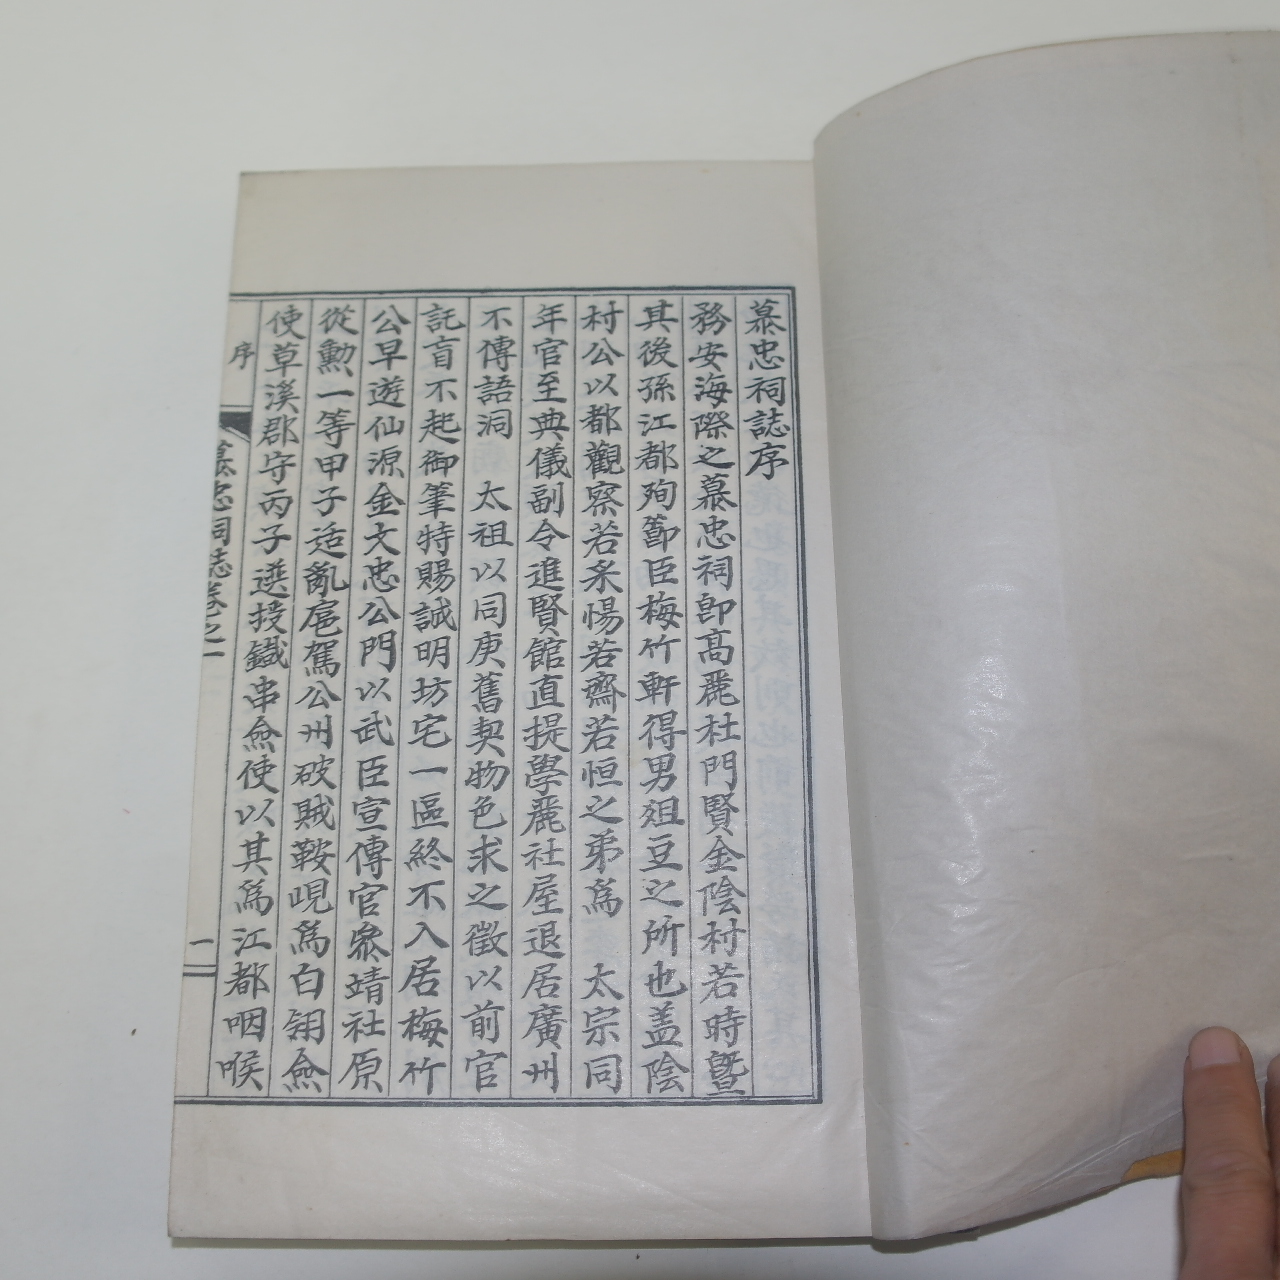 慕忠祠誌序
務安海際之慕忠祠卽高麗杜門賢金陰村若時曁
其後孫江都殉節臣梅竹軒得男俎豆之所也盖陰
村公以都觀察若采惕若齋若恒之弟爲　太宗同
年官至典儀副令進賢館直提學麗社屋退居廣州
不傳語洞　太祖以同庚舊契物色求之徵以前官
託盲不起御筆特賜誠明坊宅一區終不入居梅竹
公早遊仙源金文忠公門以武臣宣傳官參靖社原
從勳一等甲子适亂扈駕公州破賊鞍峴爲白翎僉
使草溪郡守丙子選授鐵串僉使以其爲江都咽喉
序
慕忠祠誌卷之一
一